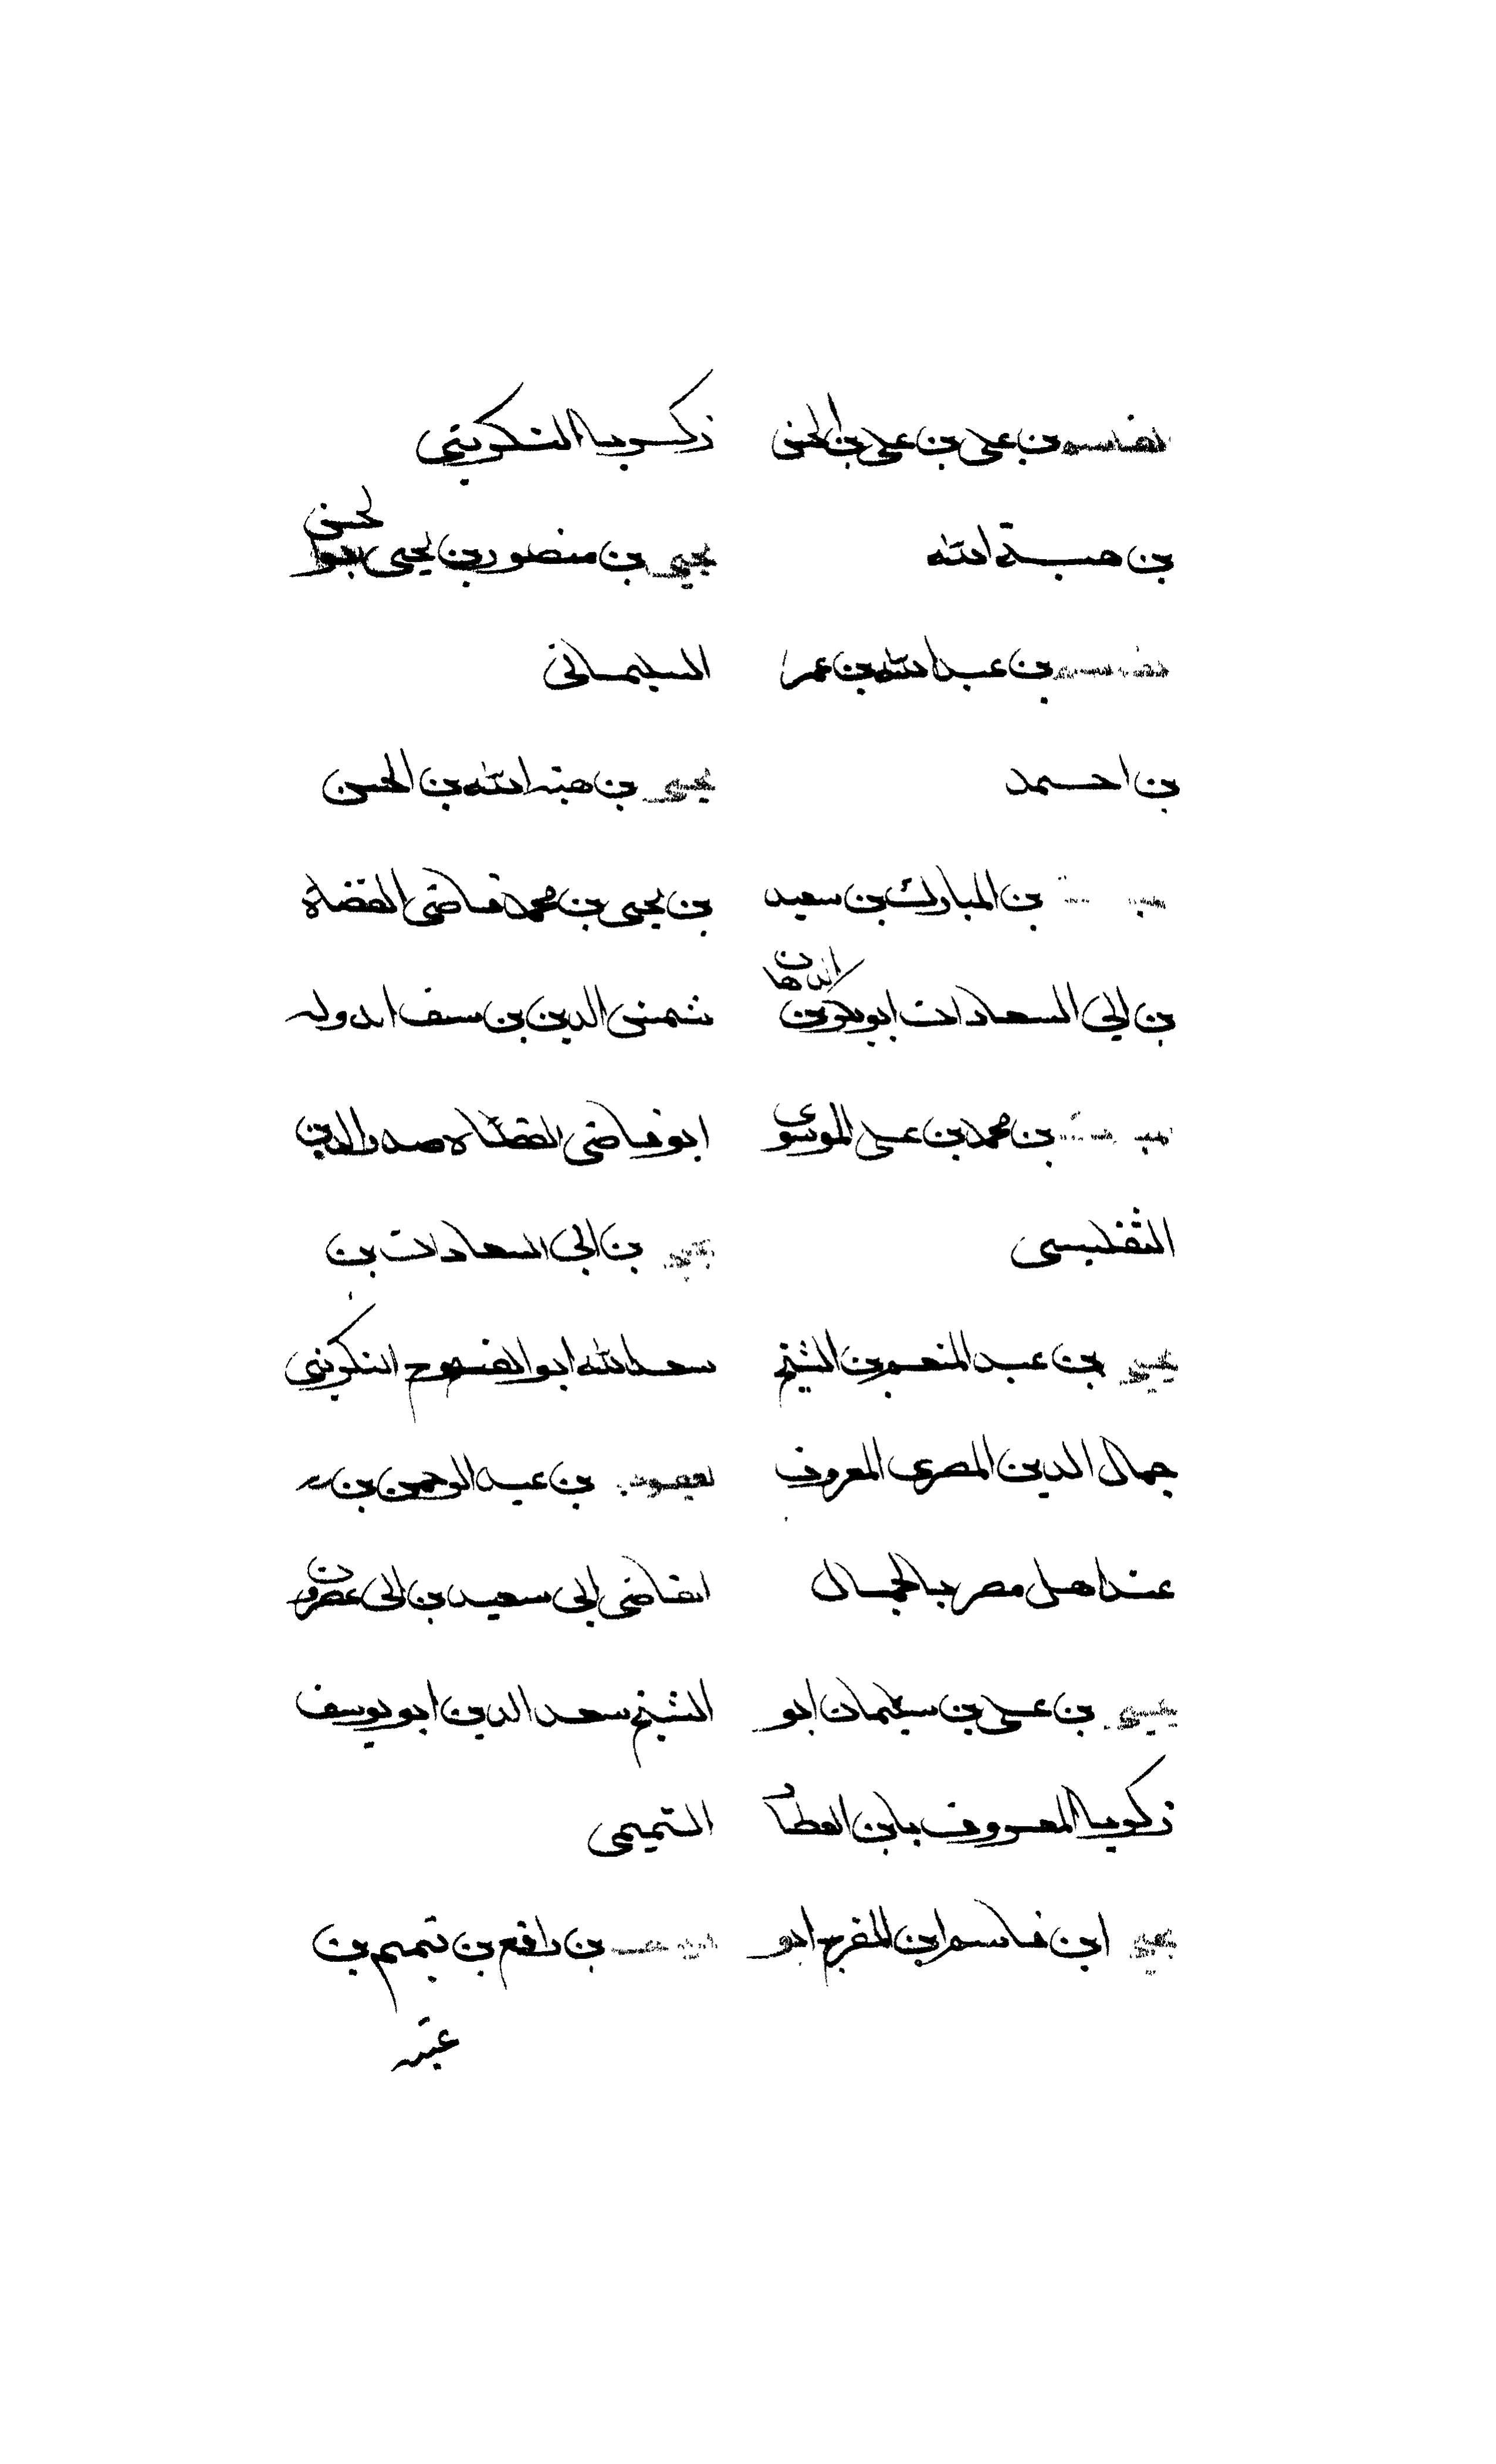 بن على بن على بن الحسن
بن هبة الله
بن عبد الله بن عمر
بن احمد
بن المبارك بن سعيد
بن ابى السعادات ابو بكر بن الدهان
بن محمد بن على الموسوى
التفليسى
يحيى بن عبد المنعم بن الشيخ
جمال الدين المصرى المعروف
عند اهل مصر بالجمال
يحيى بن على بن سليمان ابو
زكريا المعروف بابن العطار
يحيى ابن قاسم ابن المفرج ابو
زكريا التكريتى
يحيى بن منصور بن يحيى ابو الحسن
السليمانى
يحيى بن هبة الله بن الحسن
بن يحيى بن محمد قاضى القضاة
شمس الدين بن سنى الدوله
ابو قاضى القضاة صدر الدين
يحيى بن ابى السعادات بن
سعد الله ابو الفتوح التكريتى
يعقوب بن عبد الرحمن بن
القاضى ابى سعيد بن ابى عصرون
الشيخ سعد الدين ابو يوسف
التميمى
بن رافع بن تميم بن
عتبه